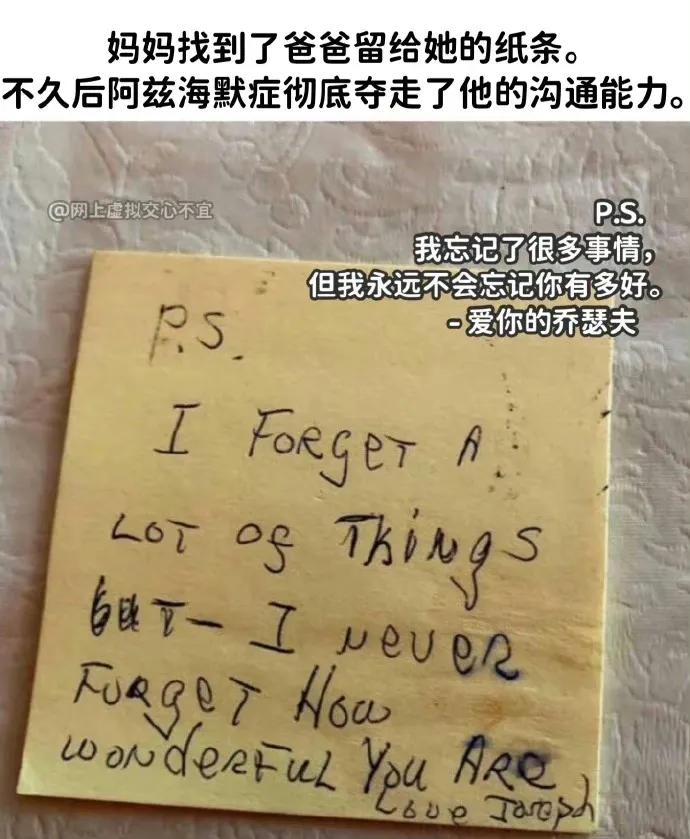 妈妈找到了爸爸留给她的纸条。
不久后阿兹海默症彻底夺走了他的沟通能力。
@网上虚拟交心不宜
P.S.
我忘记了很多事情，
但我永远不会忘记你有多好。
- 爱你的乔瑟夫
P.S.
I FORGET A
LOT OF THINGS
BUT- I NEVER
FORGET HOW
WONDERFUL YOU ARE
LOVE JOSEPH